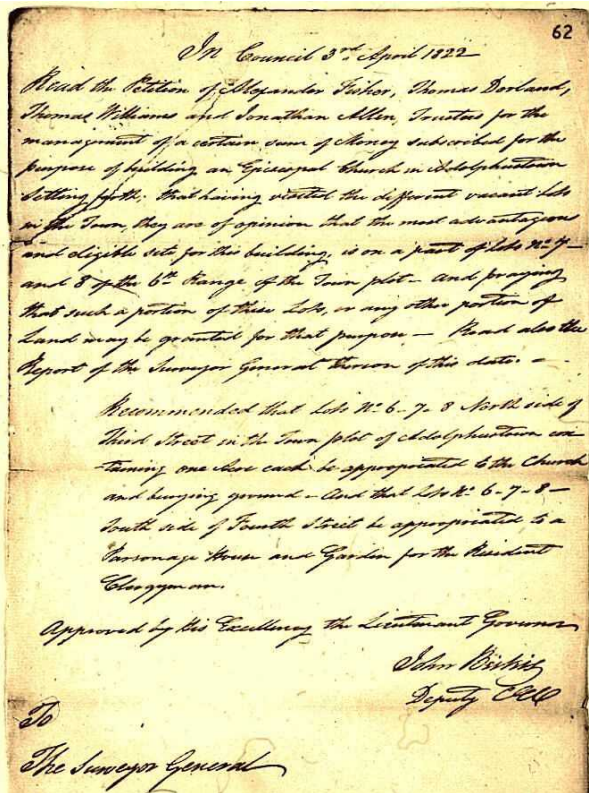 62
In Council 3rd April 1822
Read the Petition of Alexander Fisher, Thomas Dorland,
Thomas Williams and Jonathan Allen, Trustees for the
management of a certain sum of Money subscribed for the
purpose of building an Episcopal Church in Adolphustown
Setting forth; that having visited the different vacant Lots
in the Town, they are of opinion that the most advantageous
and eligible site for this building, is on a part of Lots No 7 –
and 8 of the 6th Range of the Town plot – and praying
that such a portion of these Lots, or any other portion of
Land may be granted for that purpose – Read also the
Report of the Surveyor General thereon of this date. –
Recommended that Lots No 6 - 7 - 8 North side of
Third Street in the Town plot of Adolphustown con
-taining one Acre each be appropriated to the Church
and burying ground – And that Lots No 6 - 7 - 8 –
South side of Fourth Street be appropriated to a
Parsonage House and Garden for the Resident
Clergyman.
Approved by His Excellency the Lieutenant Governor
John Bikie
Deputy CEC
To
The Surveyor General